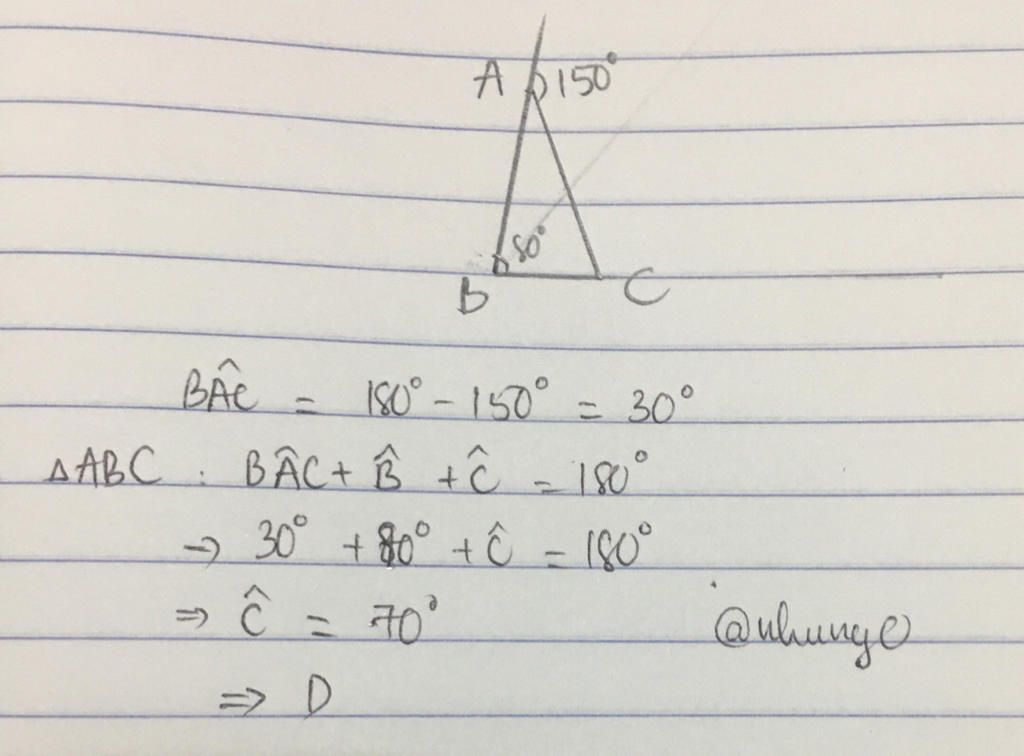 A 150°
80°
B C
BÂC = 180° - 150° = 30°
△ABC : BÂC + B̂ + Ĉ = 180°
→ 30° + 80° + Ĉ = 180°
⇒ Ĉ = 70°
@nhunge
⇒ D